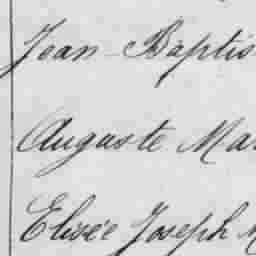 Jean-Baptis
Auguste Mar
Elisée Joseph M